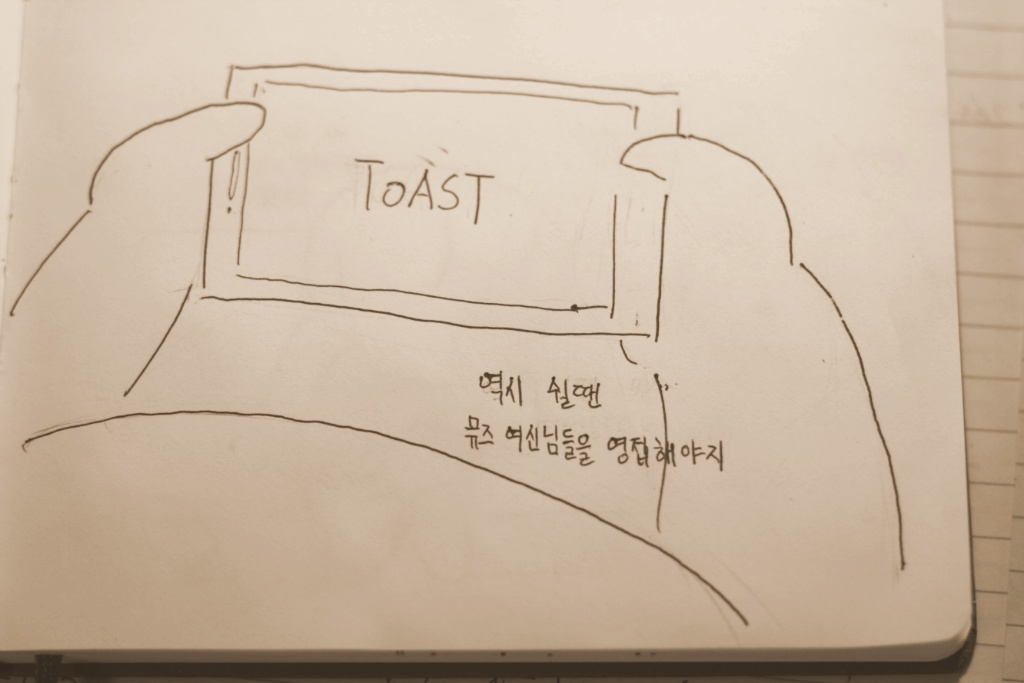 TOAST
역시 쉴땐
뮤즈 여신님들을 영접해야지